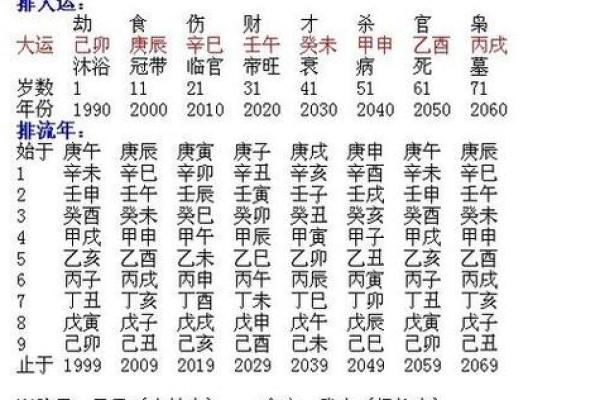 排大运：
劫 食 伤 财 才 杀 官 枭
大运 己卯 庚辰 辛巳 壬午 癸未 甲申 乙酉 丙戌
沐浴 冠带 临官 帝旺 衰 病 死 墓
岁数 1 11 21 31 41 51 61 71
年份 1990 2000 2010 2020 2030 2040 2050 2060
排流年：
始于 庚午 庚辰 庚寅 庚子 庚戌 庚申 庚午 庚辰
1 辛未 辛巳 辛卯 辛丑 辛亥 辛酉 辛未 辛巳
2 壬申 壬午 壬辰 壬寅 壬子 壬戌 壬申 壬午
3 癸酉 癸未 癸巳 癸卯 癸丑 癸亥 癸酉 癸未
4 甲戌 甲申 甲午 甲辰 甲寅 甲子 甲戌 甲申
5 乙亥 乙酉 乙未 乙巳 乙卯 乙丑 乙亥 乙酉
6 丙子 丙戌 丙申 丙午 丙辰 丙寅 丙子 丙戌
7 丁丑 丁亥 丁酉 丁未 丁巳 丁卯 丁丑 丁亥
8 戊寅 戊子 戊戌 戊申 戊午 戊辰 戊寅 戊子
9 己卯 己丑 己亥 己酉 己未 己巳 己卯 己丑
止于 1999 2009 2019 2029 2039 2049 2059 2069